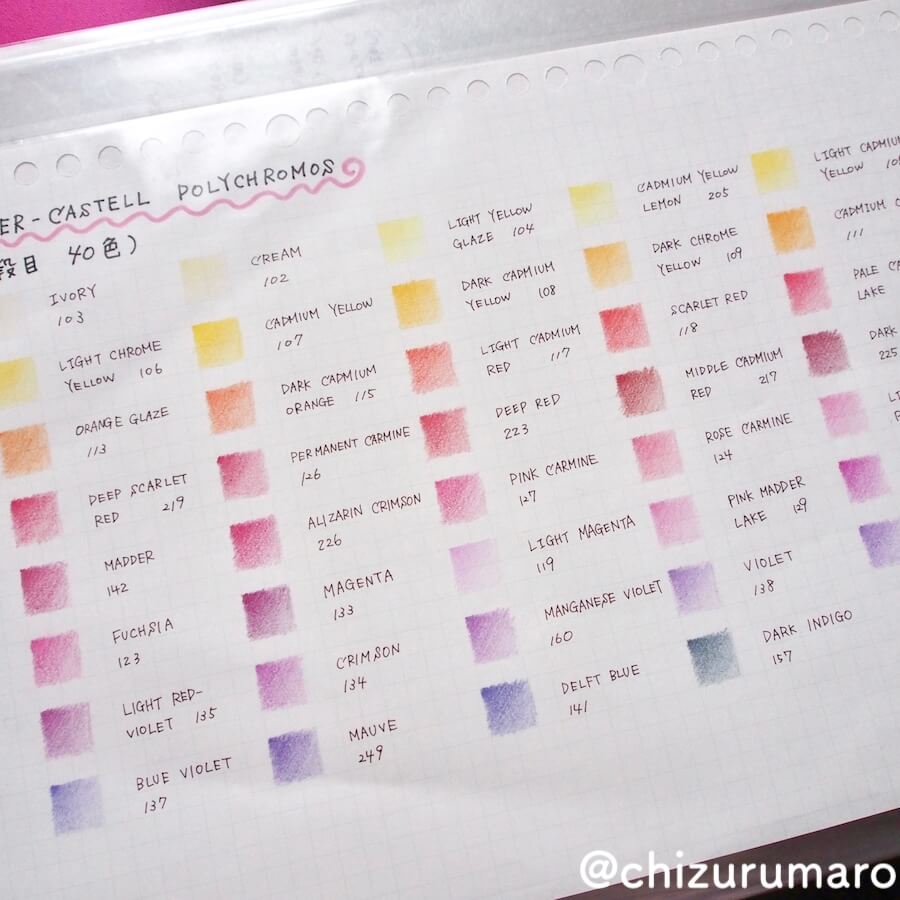 ER-CASTELL POLYCHROMOS
段目 40色)
IVORY
103
CREAM
102
LIGHT YELLOW
GLAZE 104
CADMIUM YELLOW
LEMON 205
LIGHT CADMIUM
YELLOW 105
LIGHT CHROME
YELLOW 106
CADMIUM YELLOW
107
DARK CADMIUM
YELLOW 108
DARK CHROME
YELLOW 109
CADMIUM
111
ORANGE GLAZE
113
DARK CADMIUM
ORANGE 115
LIGHT CADMIUM
RED 117
SCARLET RED
118
PALE
LAKE
DEEP SCARLET
RED 219
PERMANENT CARMINE
126
DEEP RED
223
MIDDLE CADMIUM
RED 217
DARK
225
MADDER
142
ALIZARIN CRIMSON
226
PINK CARMINE
127
ROSE CARMINE
124
FUCHSIA
123
MAGENTA
133
LIGHT MAGENTA
119
PINK MADDER
LAKE 129
LIGHT RED-
VIOLET 135
CRIMSON
134
MANGANESE VIOLET
160
VIOLET
138
BLUE VIOLET
137
MAUVE
249
DELFT BLUE
141
DARK INDIGO
157
@chizurumaro